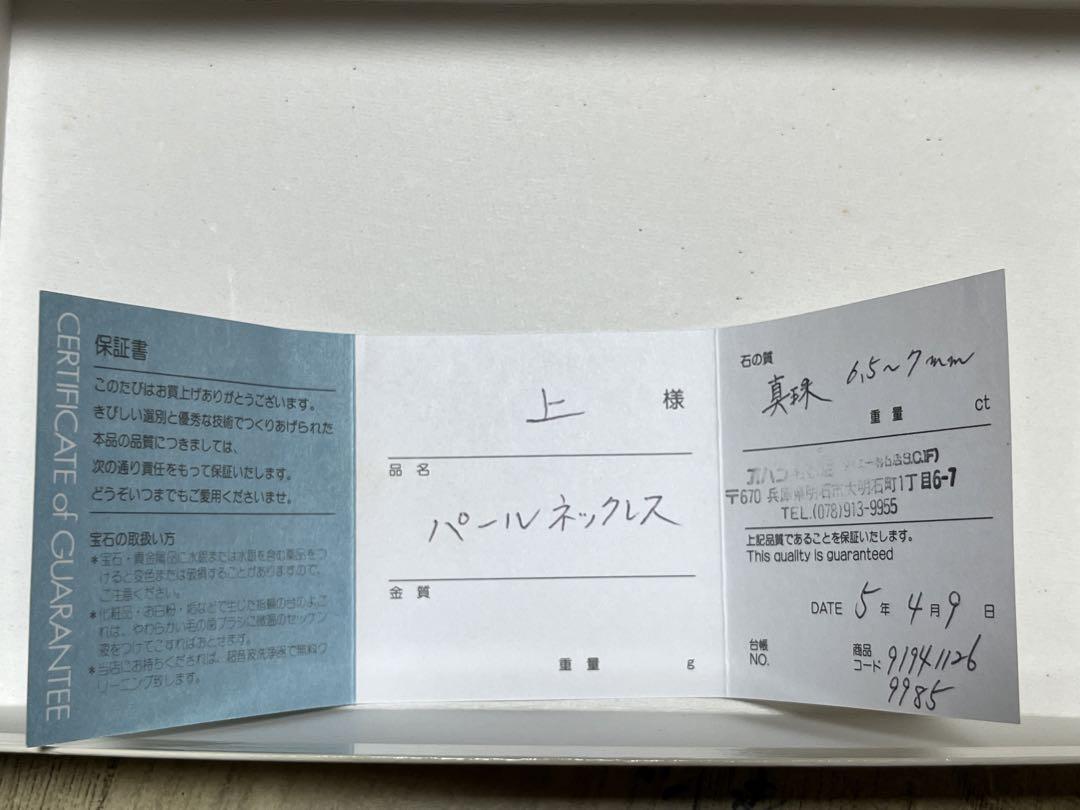 CERTIFICATE of GUARANTEE
保証書
このたびはお買上げありがとうございます。
きびしい選別と優秀な技術でつくりあげられた
本品の品質につきましては、
次の通り責任をもって保証いたします。
どうぞいつまでもご愛用くださいませ。
宝石の取扱い方
*宝石・貴金属品に水銀または水銀を含む薬品をつ
けると変色または破損することがありますので、
ご注意ください。
*化粧品・お白粉・垢などで生じた指輪の台のよごれ
は、やわらかい毛の歯ブラシに微温のセッケン
液をつけてこすればおとせます。
*当店にお持ちくだされば、超音波洗浄器で無料ク
リーニング致します。
上 様
品名
パールネックレス
金質
重量 g
石の質
真珠 6.5～7mm
重量 ct
〒670 兵庫県明石市大明石町1丁目6-7
TEL.(078)913-9955
上記品質であることを保証いたします。
This quality is guaranteed
DATE 5年4月9日
台帳
NO.
商品
コード 91941126
9985